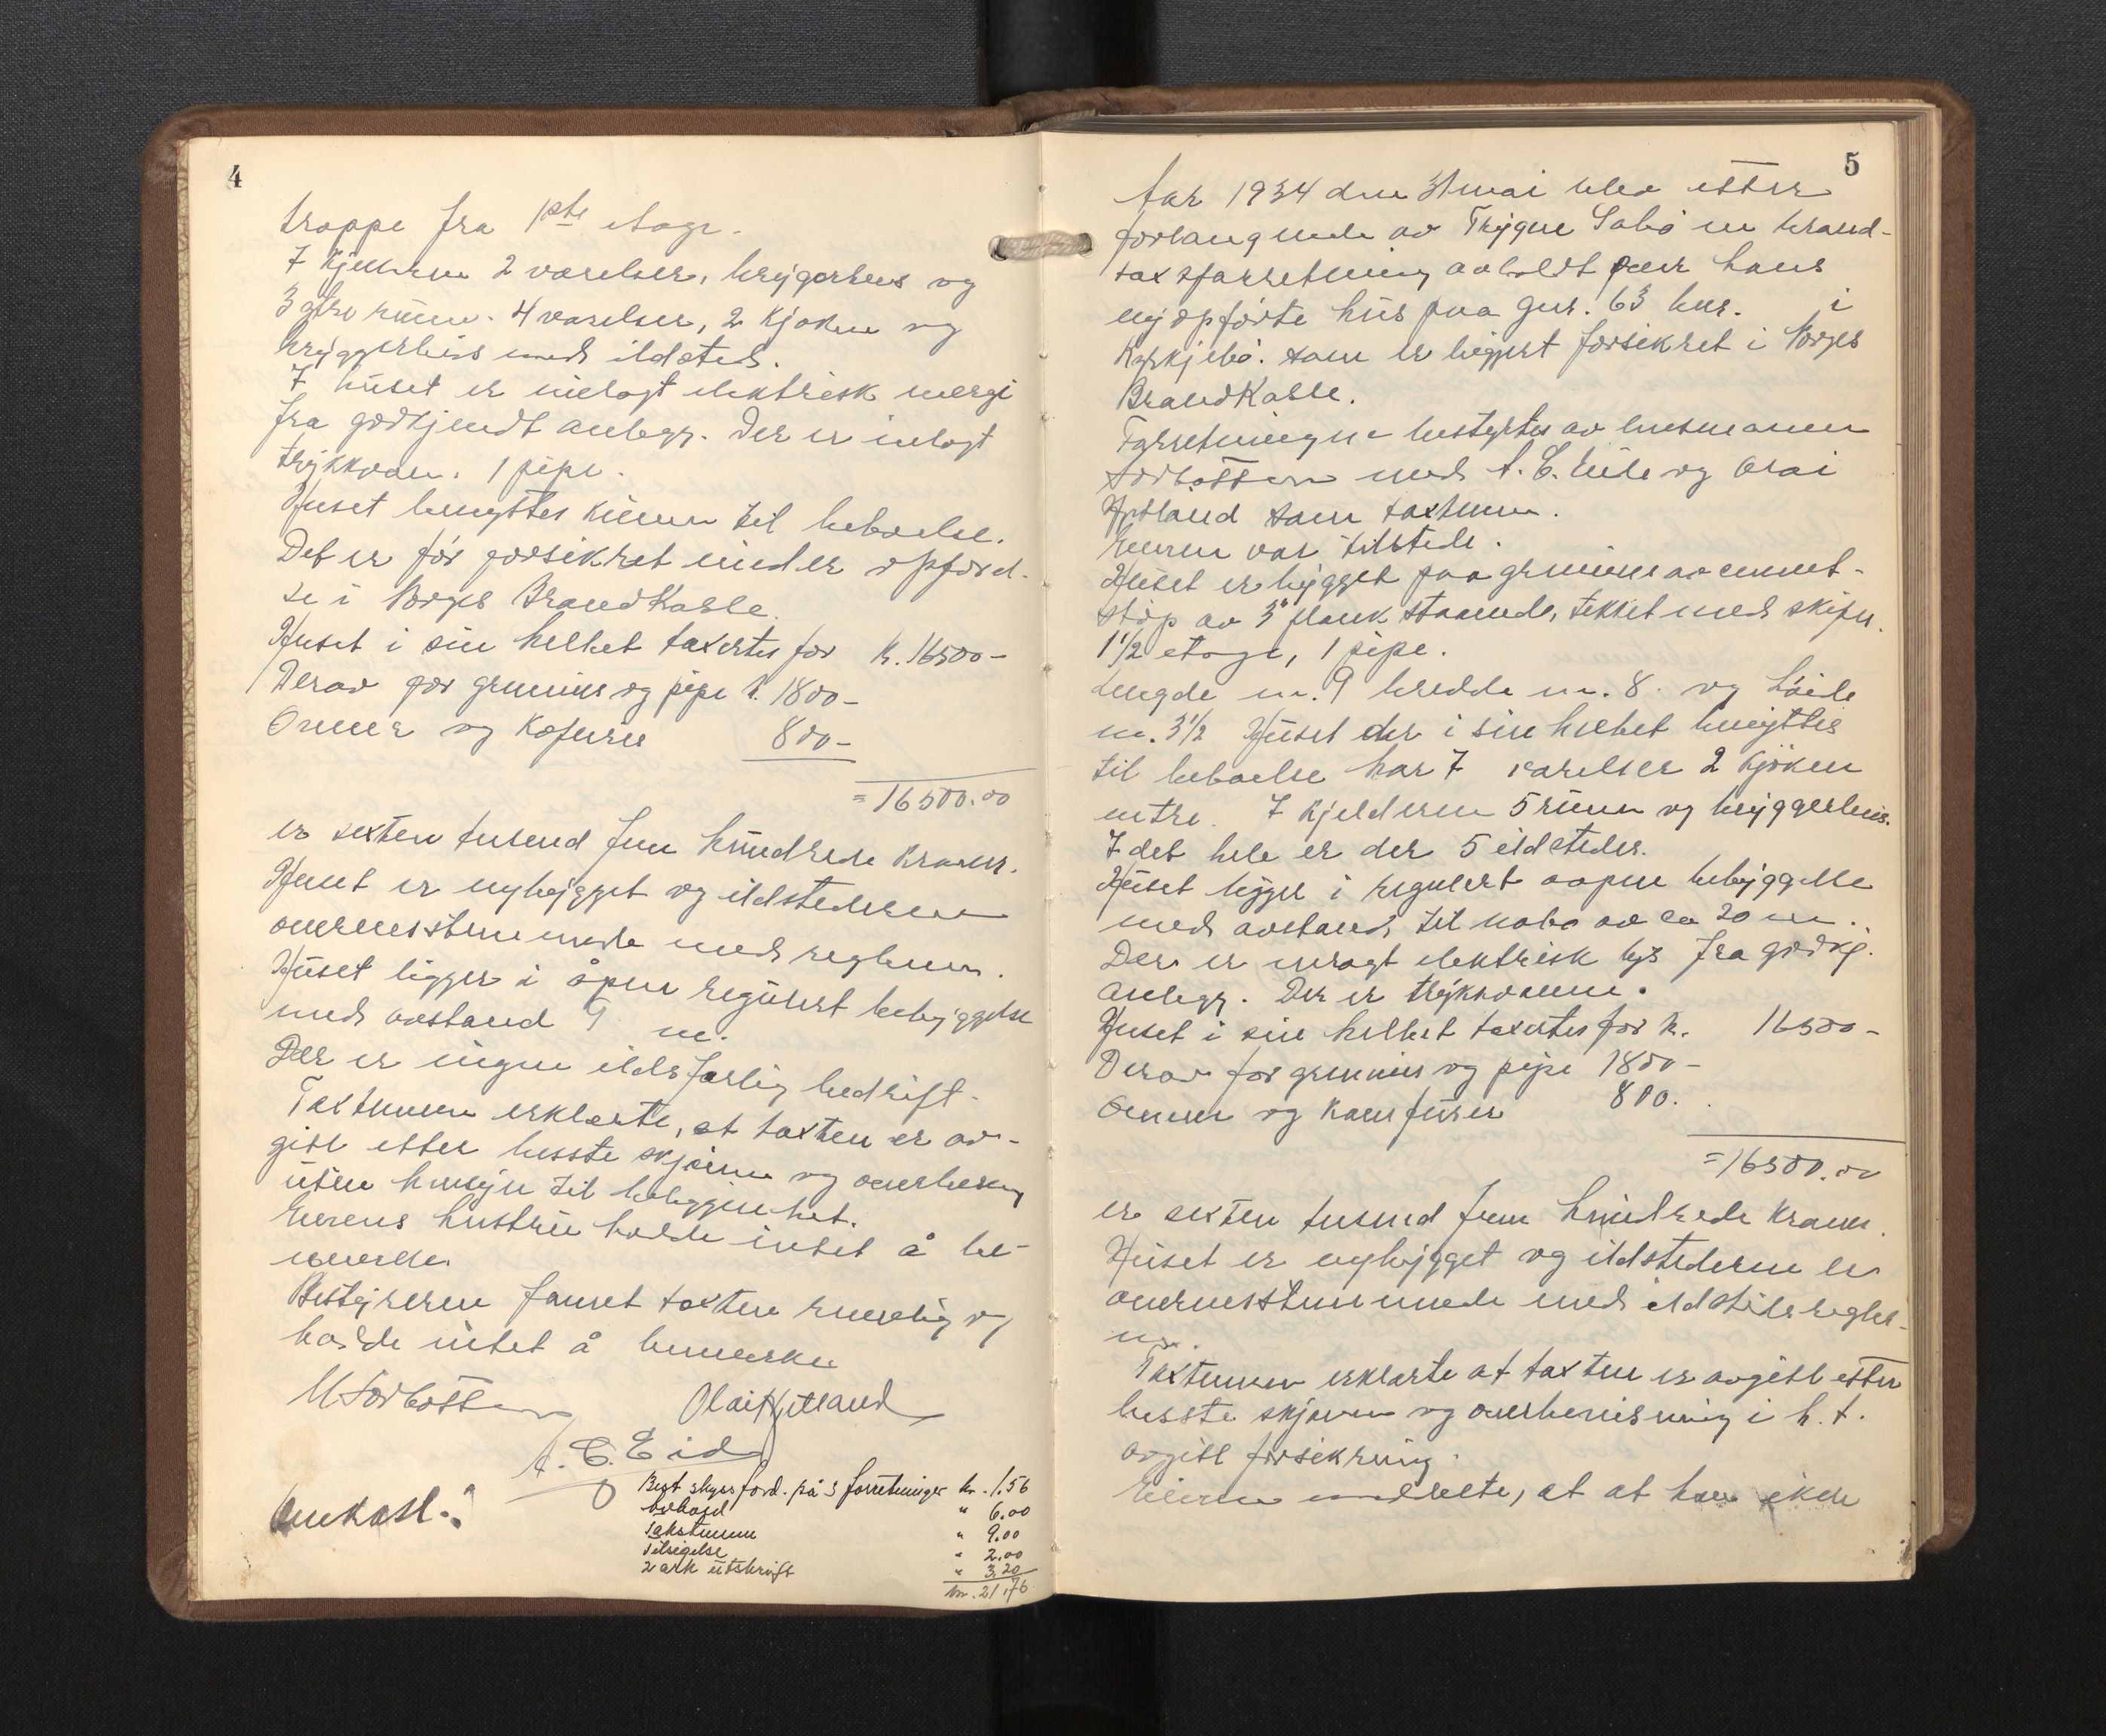 4
trappe fra 1ste etage.
I Kjelleren 2 værelser, bryggerhus og
3 rum. 4 værelser, 2 Kjøken og
bryggerhus med ildsted.
I huset er inlagt elektrisk energi
fra godkjendt anlegg. Der er inlagt
trykkvan. 1 pipe.
Huset benyttes kuen til beboelse.
Det er før forsikret under opførel-
se i Norges BrandKasse.
Huset i sin helhet taxertes for k. 16500-
Derav for grunmur og pipe k. 1800-
Ovner og Kofurer 800-
=16500.00
er sexten tusend fem hundrede Kroner.
Huset er nybygget og ildstederne
overensstemmende med reglerne.
Huset ligger i åpen regulert bebyggelse
med avstand 9 m.
Der er ingen ildsfarlig bedrift.
Taxtmenn erklærte, at taxten er av-
gitt etter beste skjønn og overbevisn
uten hensyn til beliggenhet.
Eierens hustru hadde intet å be-
merke.
Bestyreren fannet taxten rimelig og
hadde intet å bemerke
M Sørbotten Olai Hjetland
A. C. Eide
Omkost.:
Best skyssgod. på 3 forretninger kr. 1.56
" 6.00
Takstmenn " 9.00
Tilsigelse " 2.00
2 ark utskrift " 3.20
kr. 21.76
5
Aar 1934 den 31 mai blev etter
forlangende av Trygve Sabø en brand-
taxtforretning avholdt over hans
nyopførte hus paa gnr. 63 bnr. i
Kyrkjebø. som er begjert forsikret i Norges
BrandKasse.
Forretningen bestyrtes av lensmannen
Sørbotten med A. C. Eide og Olai
Hjetland som taxtmenn.
Eieren var tilstede.
Huset er bygget paa grunmur av cement-
støp av 3" plank staaende, tekket med skifer.
1 1/2 etage, 1 pipe.
Lengde m. 9 bredde m. 8. og høide
m. 3 1/2 Huset der i sin helhet benyttes
til beboelse har 7 værelser 2 Kjøken
entre. I Kjelderen 5 rum og bryggerhus.
I det hele er der 5 ildsteder.
Huset ligger i regulert aapen bebyggelse
med avstand til nabo av ca 20 m.
Der er inlagt elektrisk lys fra godkj.
anlegg. Der er trykkvann.
Huset i sin helhet taxertes for k. 16500-
Derav for grunmur og pipe 1800-
Ovner og Komfurer 800.
=16500.00
er sexten tusend fem hundrede Kroner.
Huset er nybygget og ildstederne er
overensstemmende med ildstedsregler-
ne.
Taxtmenn erklærte at taxten er avgitt etter
beste skjønn og overbevisning i h. t.
avgitt forsikring.
Eieren at at han ikke